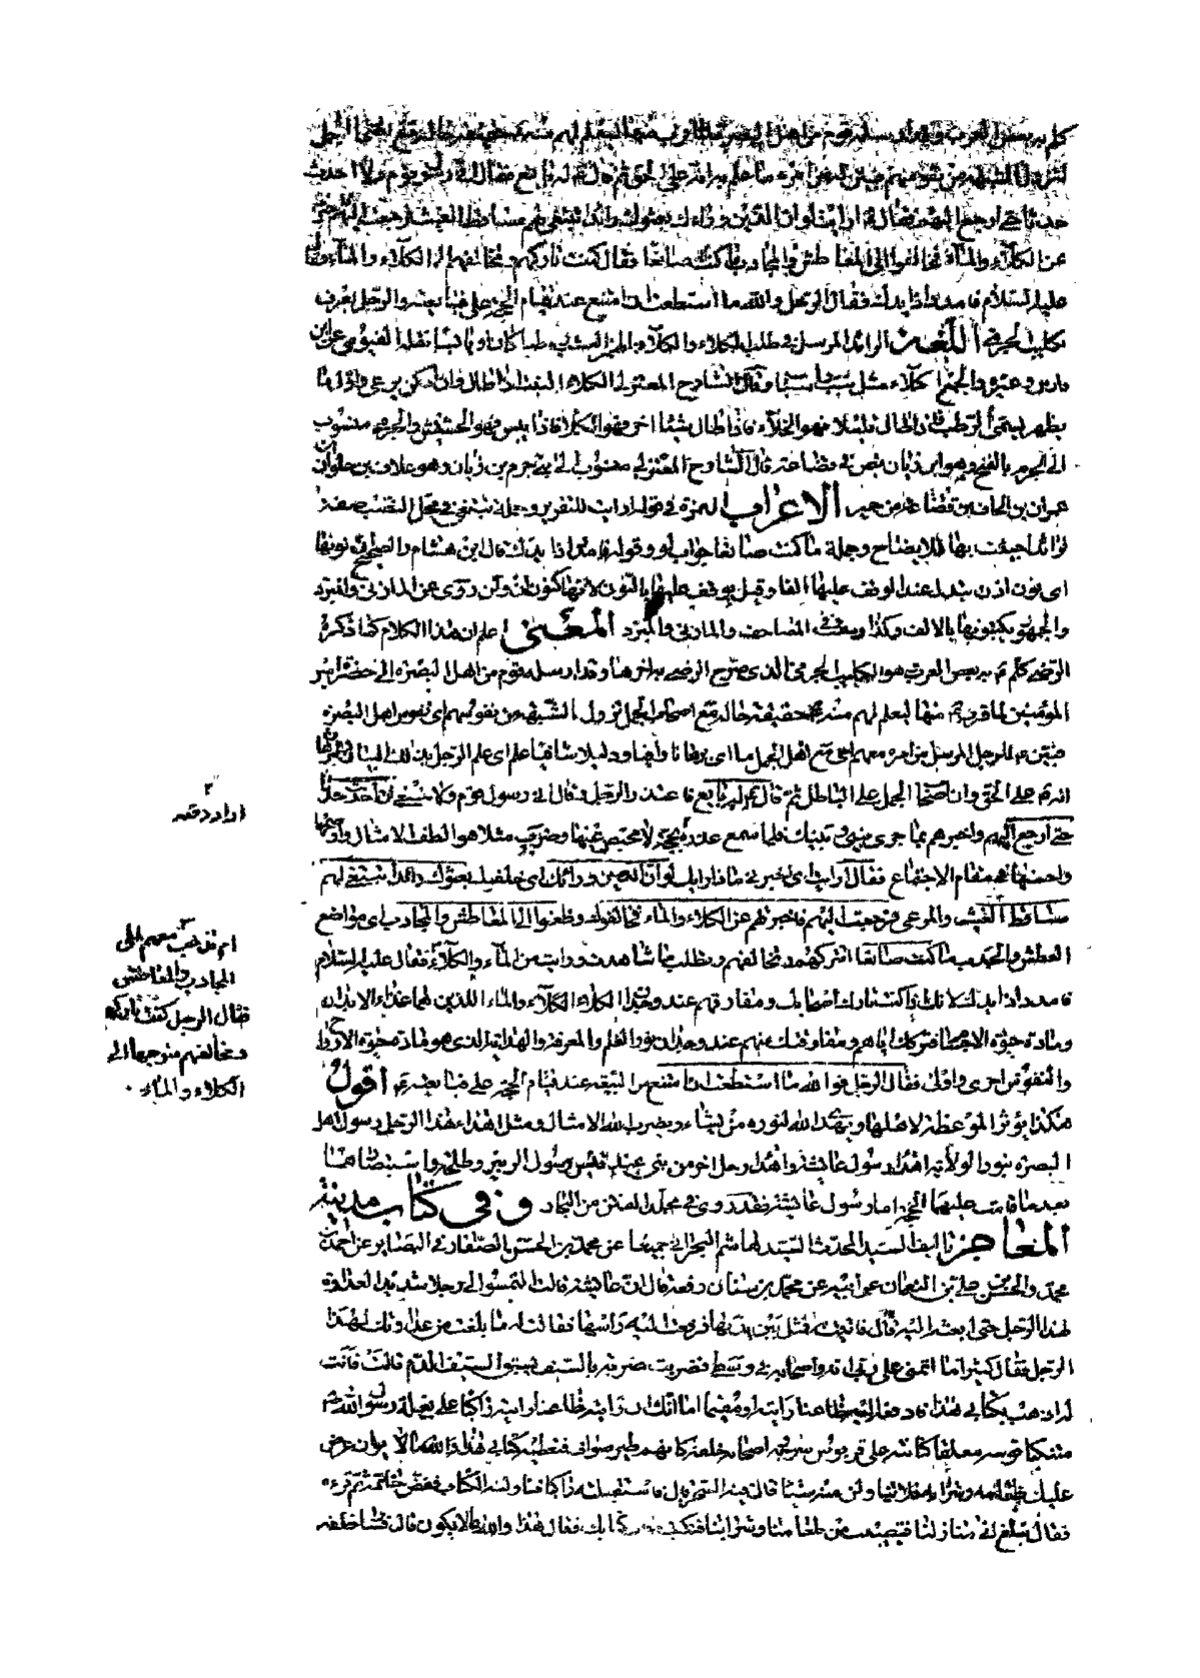 كلم به بعض العرب وقد ارسله قوم من اهل البصرة لما قرب منها ليعلم لهم منه حقيقة حاله مع اصحاب الجمل
لتزول الشبهة من نفوسهم فبين له من امره معهم ما علم به انه على الحق ثم قال له بايع فقال انى رسول قوم ولا احدث
حدثا حتى ارجع اليهم فقال ارايت لو ان الذين وراءك بعثوك رائدا تبتغى لهم مساقط الغيث فرجعت اليهم واخبرتهم
عن الكلاء والماء فخالفوا الى المعاطش والمجادب ما كنت صانعا فقال كنت تاركهم ومخالفهم الى الكلاء والماء فقال
عليه السلام فامدد اذا يدك فقال الرجل والله ما استطعت ان امتنع عند قيام الحجة على فبايعته والرجل يعرف
بكليب الجرمى اللغة الرائد المرسل فى طلب الكلاء والكلاء بالهمز العشب رطبا كان او يابسا نقله الفيومى عن ابن
فارس وغيره والجمع اكلاء مثل سبب واسباب وقال الشارح المعتزلى الكلاء النبت اذا طال وامكن ان يرعى واول ما
يظهر يسمى الرطب فاذا طال قليلا فهو الخلاء فاذا طال شيئا اخر فهو الكلاء فاذا يبس فهو الحشيش والجرمى منسوب
الى الجرم بالفتح وهو ابن زبان بطن فى قضاعة قال الشارح المعتزلى منسوب الى بنى جرم بن زبان وهو علاف بن حلوان بن
عمران بن الحاف بن قضاعة من حمير الاعراب الهمزة فى قوله ارايت للتقرير وجملة تبتغى فى محل النصب صفة
لرائدا جيئت بها للايضاح وجملة ما كنت صانعا جواب لو وقوله فامدد اذا يدك قال ابن هشام والصحيح ان نونها
اى نون اذن تبدل عند الوقف عليها الفا وقيل يوقف عليها بالنون لانها كنون لن وان روى عن المازنى والمبرد
والجمهور يكتبونها بالالف وكذا رسمت فى المصاحف والمازنى والمبرد المعنى اعلم ان هذا الكلام كما ذكره
الرضى كلم به بعض العرب هو الكليب الجرمى الذى صرح الرضى به اخرها وقد ارسله قوم من اهل البصرة الى حضرة امير
المؤمنين لما قرب منها ليعلم لهم منه حقيقة حاله مع اصحاب الجمل لتزول الشبهة من نفوسهم اى نفوس اهل البصرة
فبين للرجل المرسل من امره معهم اى مع اهل الجمل ما اى برهانا وافيا ودليلا شافيا علم اى علم الرجل بذلك البيان والبرهان
انه على الحق وان اصحاب الجمل على الباطل ثم قال له بايع فاعتذر الرجل وقال انى رسول قوم ولا ينبغى ان احدث حدثا
حتى ارجع اليهم واخبرهم بما جرى بينى وبينك فلما سمع عذره لا محيص عنها وضرب مثلا هو الطف الامثال واوضحها
واحسنها فى مقام الاحتجاج فقال ارايت اى اخبرنى ماذا رايك لو ان الذين ورائك اى خلفك بعثوك رائدا تبتغى لهم
مساقط الغيث والمرعى فرجعت اليهم فاخبرتهم عن الكلاء والماء فخالفوك وظعنوا الى المعاطش والمجادب اى مواضع
العطش والجدب ما كنت صانعا اتتركهم وتخالفهم وتطلب ما شاهدت ورايت من الماء والكلاء فقال عليه السلام
فامدد اذا يدك لانك اذا كنت تارك اصحابك ومفارقهم عند وجدان الكلاء والماء اللذين لهما غذاء الابدان
ومادة حيوة الاجسام فتركك اياهم ومفارقتك عنهم عند وجدان نور العلم والمعرفة والهداية الذى هو مادة حيوة الارواح
والنفوس احرى واولى فقال الرجل فوالله ما استطعت ان امتنع من البيعة عند قيام الحجة على فبايعته اقول
هكذا يؤثر الموعظة لاهلها ويهدى الله لنوره من يشاء ويضرب الله الامثال ومثل هذا الرجل رسول اهل
البصرة بنور الولاية اهتداء رسول عايشة واهتداء رجل اخر من بنى عبد القيس رسول الزبير وطلحة واستبصارهما
بعد ما قامت عليهما الحجة اما رسول عايشة فقد روى فى مجلد الفتن من البحار وفى كتاب مدينة
المعاجز تاليف السيد المحدث السيد هاشم البحرانى جميعا عن محمد بن الحسن الصفار فى البصاير عن احمد بن
محمد والحسن بن على بن النعمان عن ابيه عن محمد بن سنان رفعه قال ان عايشة قالت التمسوا لى رجلا شديد العداوة
لهذا الرجل حتى ابعثه اليه قال فاتيت به فمثل بين يديها فرفعت اليه راسها فقالت له ما بلغت من عداوتك لهذا
الرجل فقال كثيرا ما اتمنى على ربى انه واصحابه فى وسطى فضربت ضربة بالسيف فيسبق السيف الدم قالت فانت له
له اذهب بكتابى هذا فادفعه اليه ظاعنا رايته او مقيما اما انك ان رايته ظاعنا رايته راكبا على بغلة رسول الله
متنكبا قوسه معلقا كنانته على قربوس سرجه اصحابه خلفه كانهم طير صواف فتعطيه كتابى هذا والله ما لا وان عرض
عليك طعامه وشرابه فلا تنالن منه شيئا قال فاستقبلته راكبا فناولته الكتاب ففض خاتمه ثم قرءه
فقال تبلغ الى منازلنا فتصيب من طعامنا وشرابنا فنكتب جواب كتابك فقال هذا والله ما لا يكون قال فثنا خلفه
اراد دفعه
ام تذهب معهم الى
المجادب والمعاطش
فقال الرجل كنت تاركهم
ومخالفهم متوجها الى
الكلاء والماء